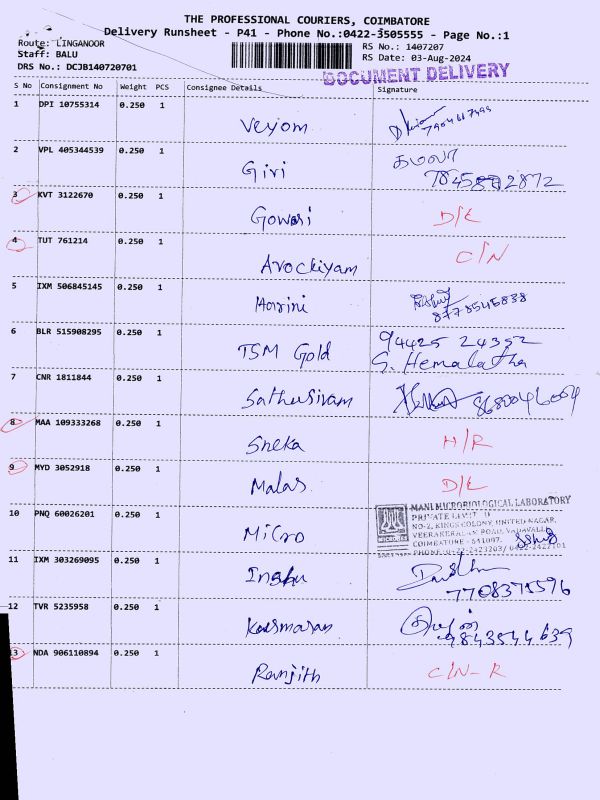 THE PROFESSIONAL COURIERS, COIMBATORE
Delivery Runsheet - P41 - Phone No.:0422-3505555 - Page No.:1
Route: LINGANOOR RS No.: 1407207
Staff: BALU RS Date: 03-Aug-2024
DRS No.: DCJB140720701
DOCUMENT DELIVERY
S No Consignment No Weight PCS Consignee Details Signature
1 DPI 10755314 0.250 1
Veyom
2 VPL 405344539 0.250 1 கமலா
Giri
3 KVT 3122670 0.250 1
Gowsri D/L
4 TUT 761214 0.250 1 C/N
Arockiyam
5 IXM 506845145 0.250 1
Harini 8778545838
6 BLR 515908295 0.250 1 94425 24352
TSM Gold S. Hemalatha
7 CNR 1811844 0.250 1
Sathusivam 8680046004
8 MAA 109333268 0.250 1
Sneka H/R
9 MYD 3052918 0.250 1
Malas D/L
10 PNQ 60026201 0.250 1 MANI MICROBIOLOGICAL LABORATORY
PRIVATE LIMITED
NO-2, KINGS COLONY, UNITED NAGAR,
Micro VEERAKERALAM ROAD, VADAVALLI,
COIMBATORE - 641007.
11 IXM 303269095 0.250 1
7708375596
12 TVR 5235958 0.250 1
9843544639
13 NDA 906110894 0.250 1
Ranjith C/N-R